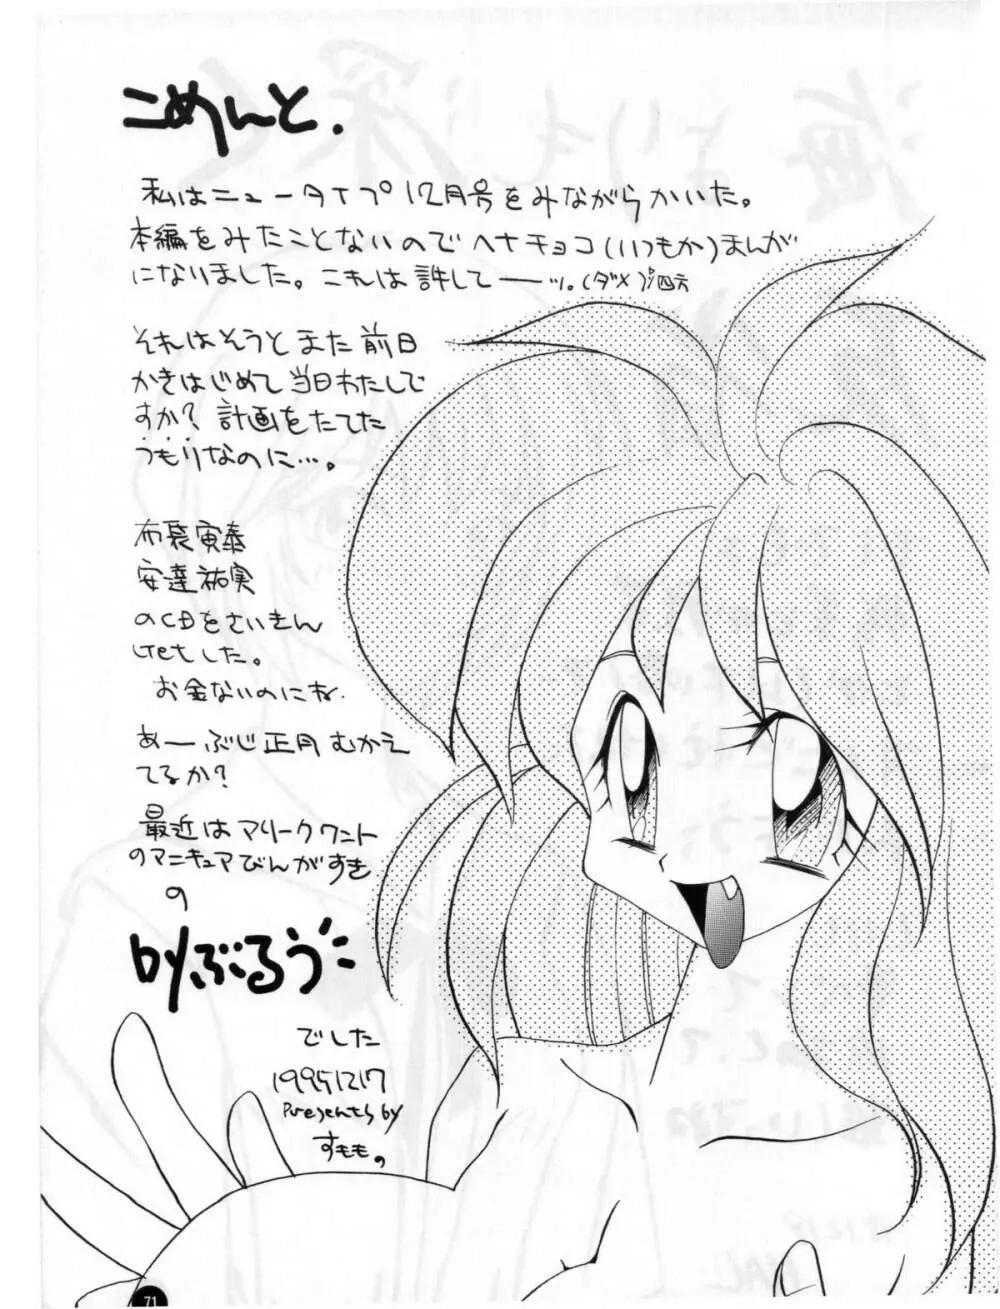 こめんと.
私はニュータイプ12月号をみながらかいた。
本編をみたことないのでヘナチョコ(いつもか)まんが
になりました。これは許してーーッ。(ダメ)
それはそうとまた前日
かきはじめて当日わたしで
すか?計画をたてた
つもりなのに…。
布袋寅泰
安達祐実
のCDをさいきん
Getした。
お金ないのにね.
あーぶじ正月むかえ
てるか?
最近はマリークワント
のマニキュアびんがすき
の
byぶるう
でした
19951217
Presents by
すももの。
71